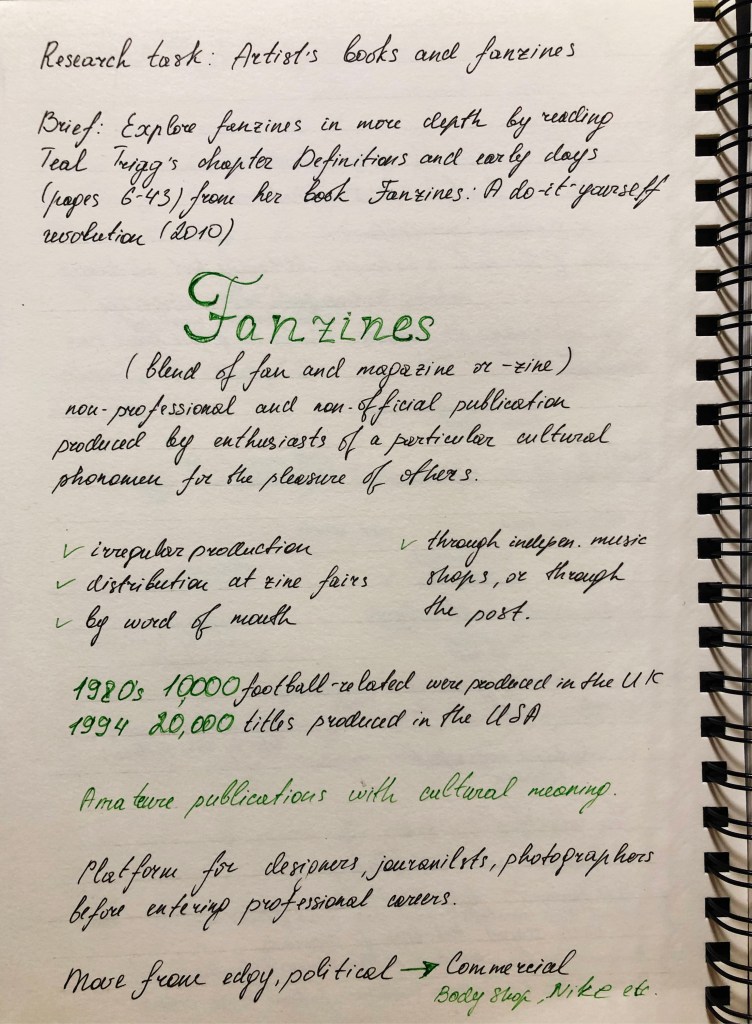 Research task: Artist's books and fanzines
Brief: Explore fanzines in more depth by reading
Teal Trigg's chapter Definitions and early days
(pages 6-43) from her book Fanzines: A do-it-yourself
revolution (2010)
Fanzines
(blend of fan and magazine or -zine)
non-professional and non-official publication
produced by enthusiasts of a particular cultural
phonomen for the pleasure of others.
✓ irregular production
✓ distribution at zine fairs
✓ by word of mouth
✓ through indepen. music
shops, or through
the post.
1980's 10,000 football-related were produced in the UK
1994 20,000 titles produced in the USA
Amateure publications with cultural meaning.
Platform for designers, jouranilsts, photographers
before entering professional careers.
Move from edgy, political → Commercial
Body shop, Nike etc.